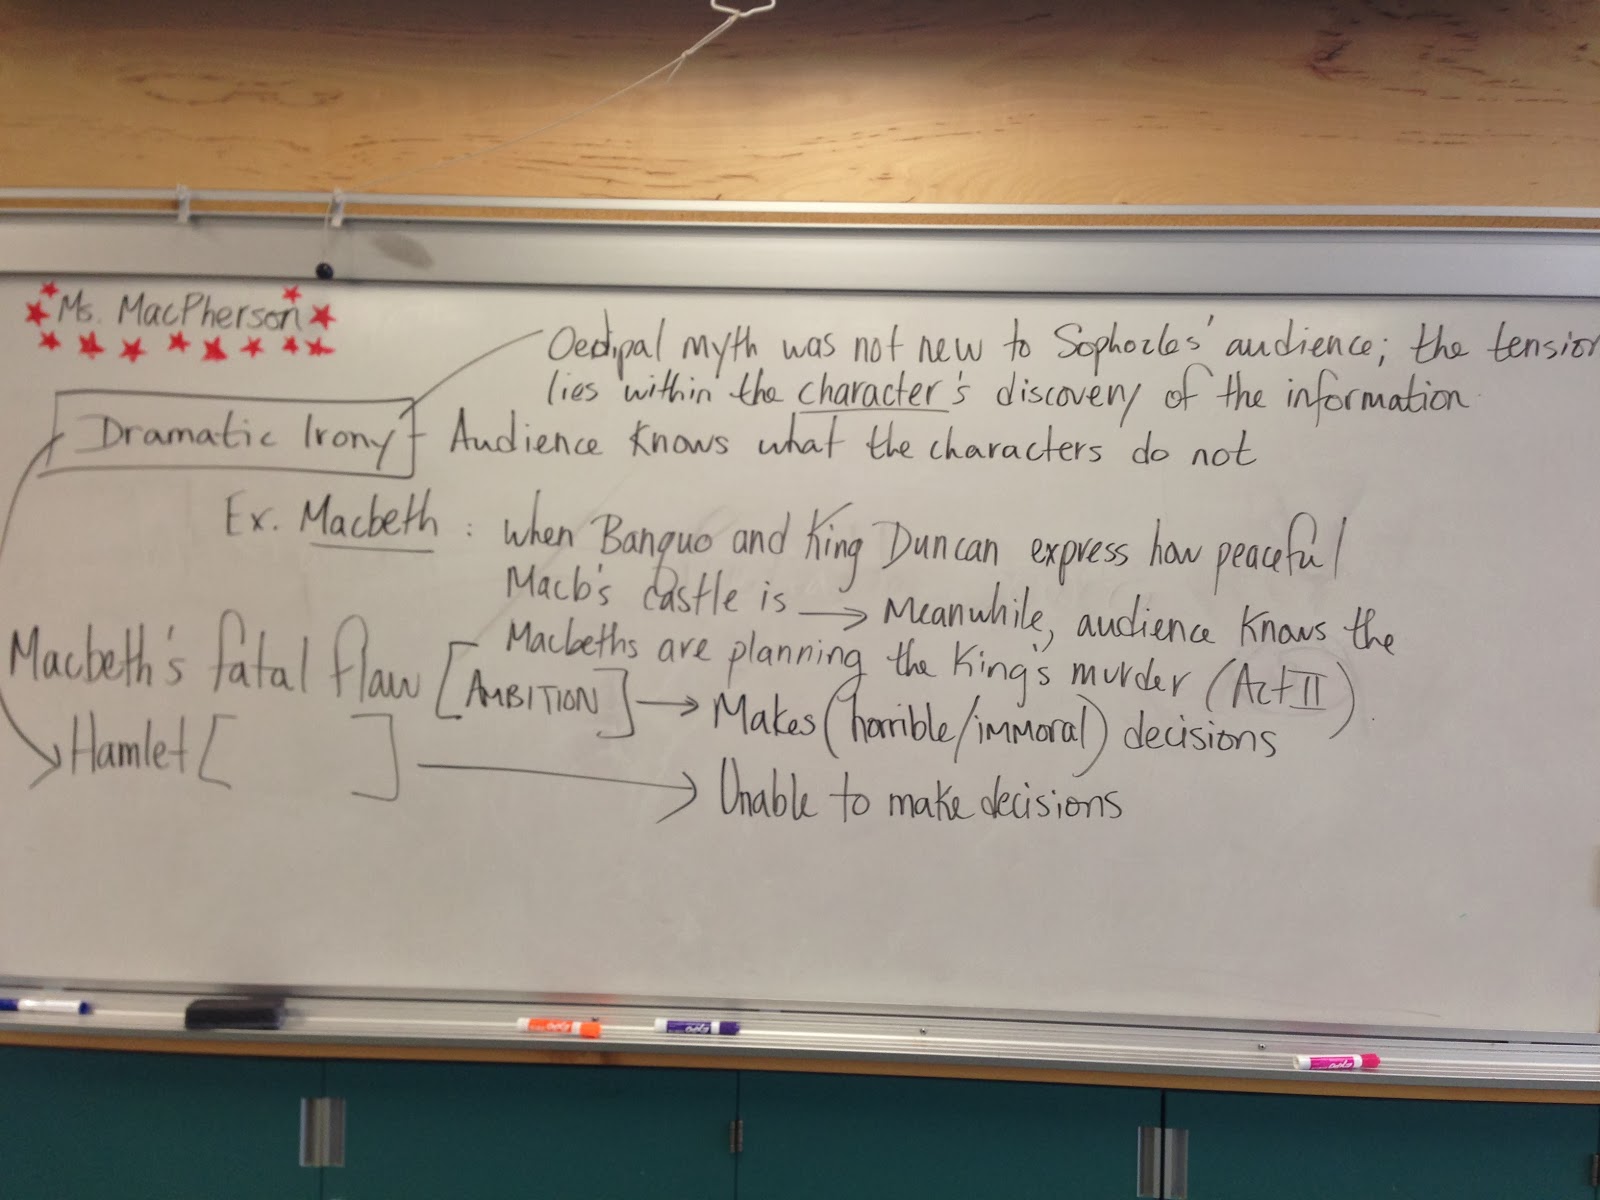 Ms. MacPherson
Oedipal myth was not new to Sophocles' audience; the tension
lies within the character's discovery of the information.
Dramatic Irony - Audience knows what the characters do not
Ex. Macbeth : when Banquo and King Duncan express how peaceful
Macb's castle is → Meanwhile, audience knows the
Macbeths are planning the King's murder (Act II).
Macbeth's fatal flaw [AMBITION] → Makes (horrible/immoral) decisions
→ Hamlet [ ] → Unable to make decisions
expo
expo
expo